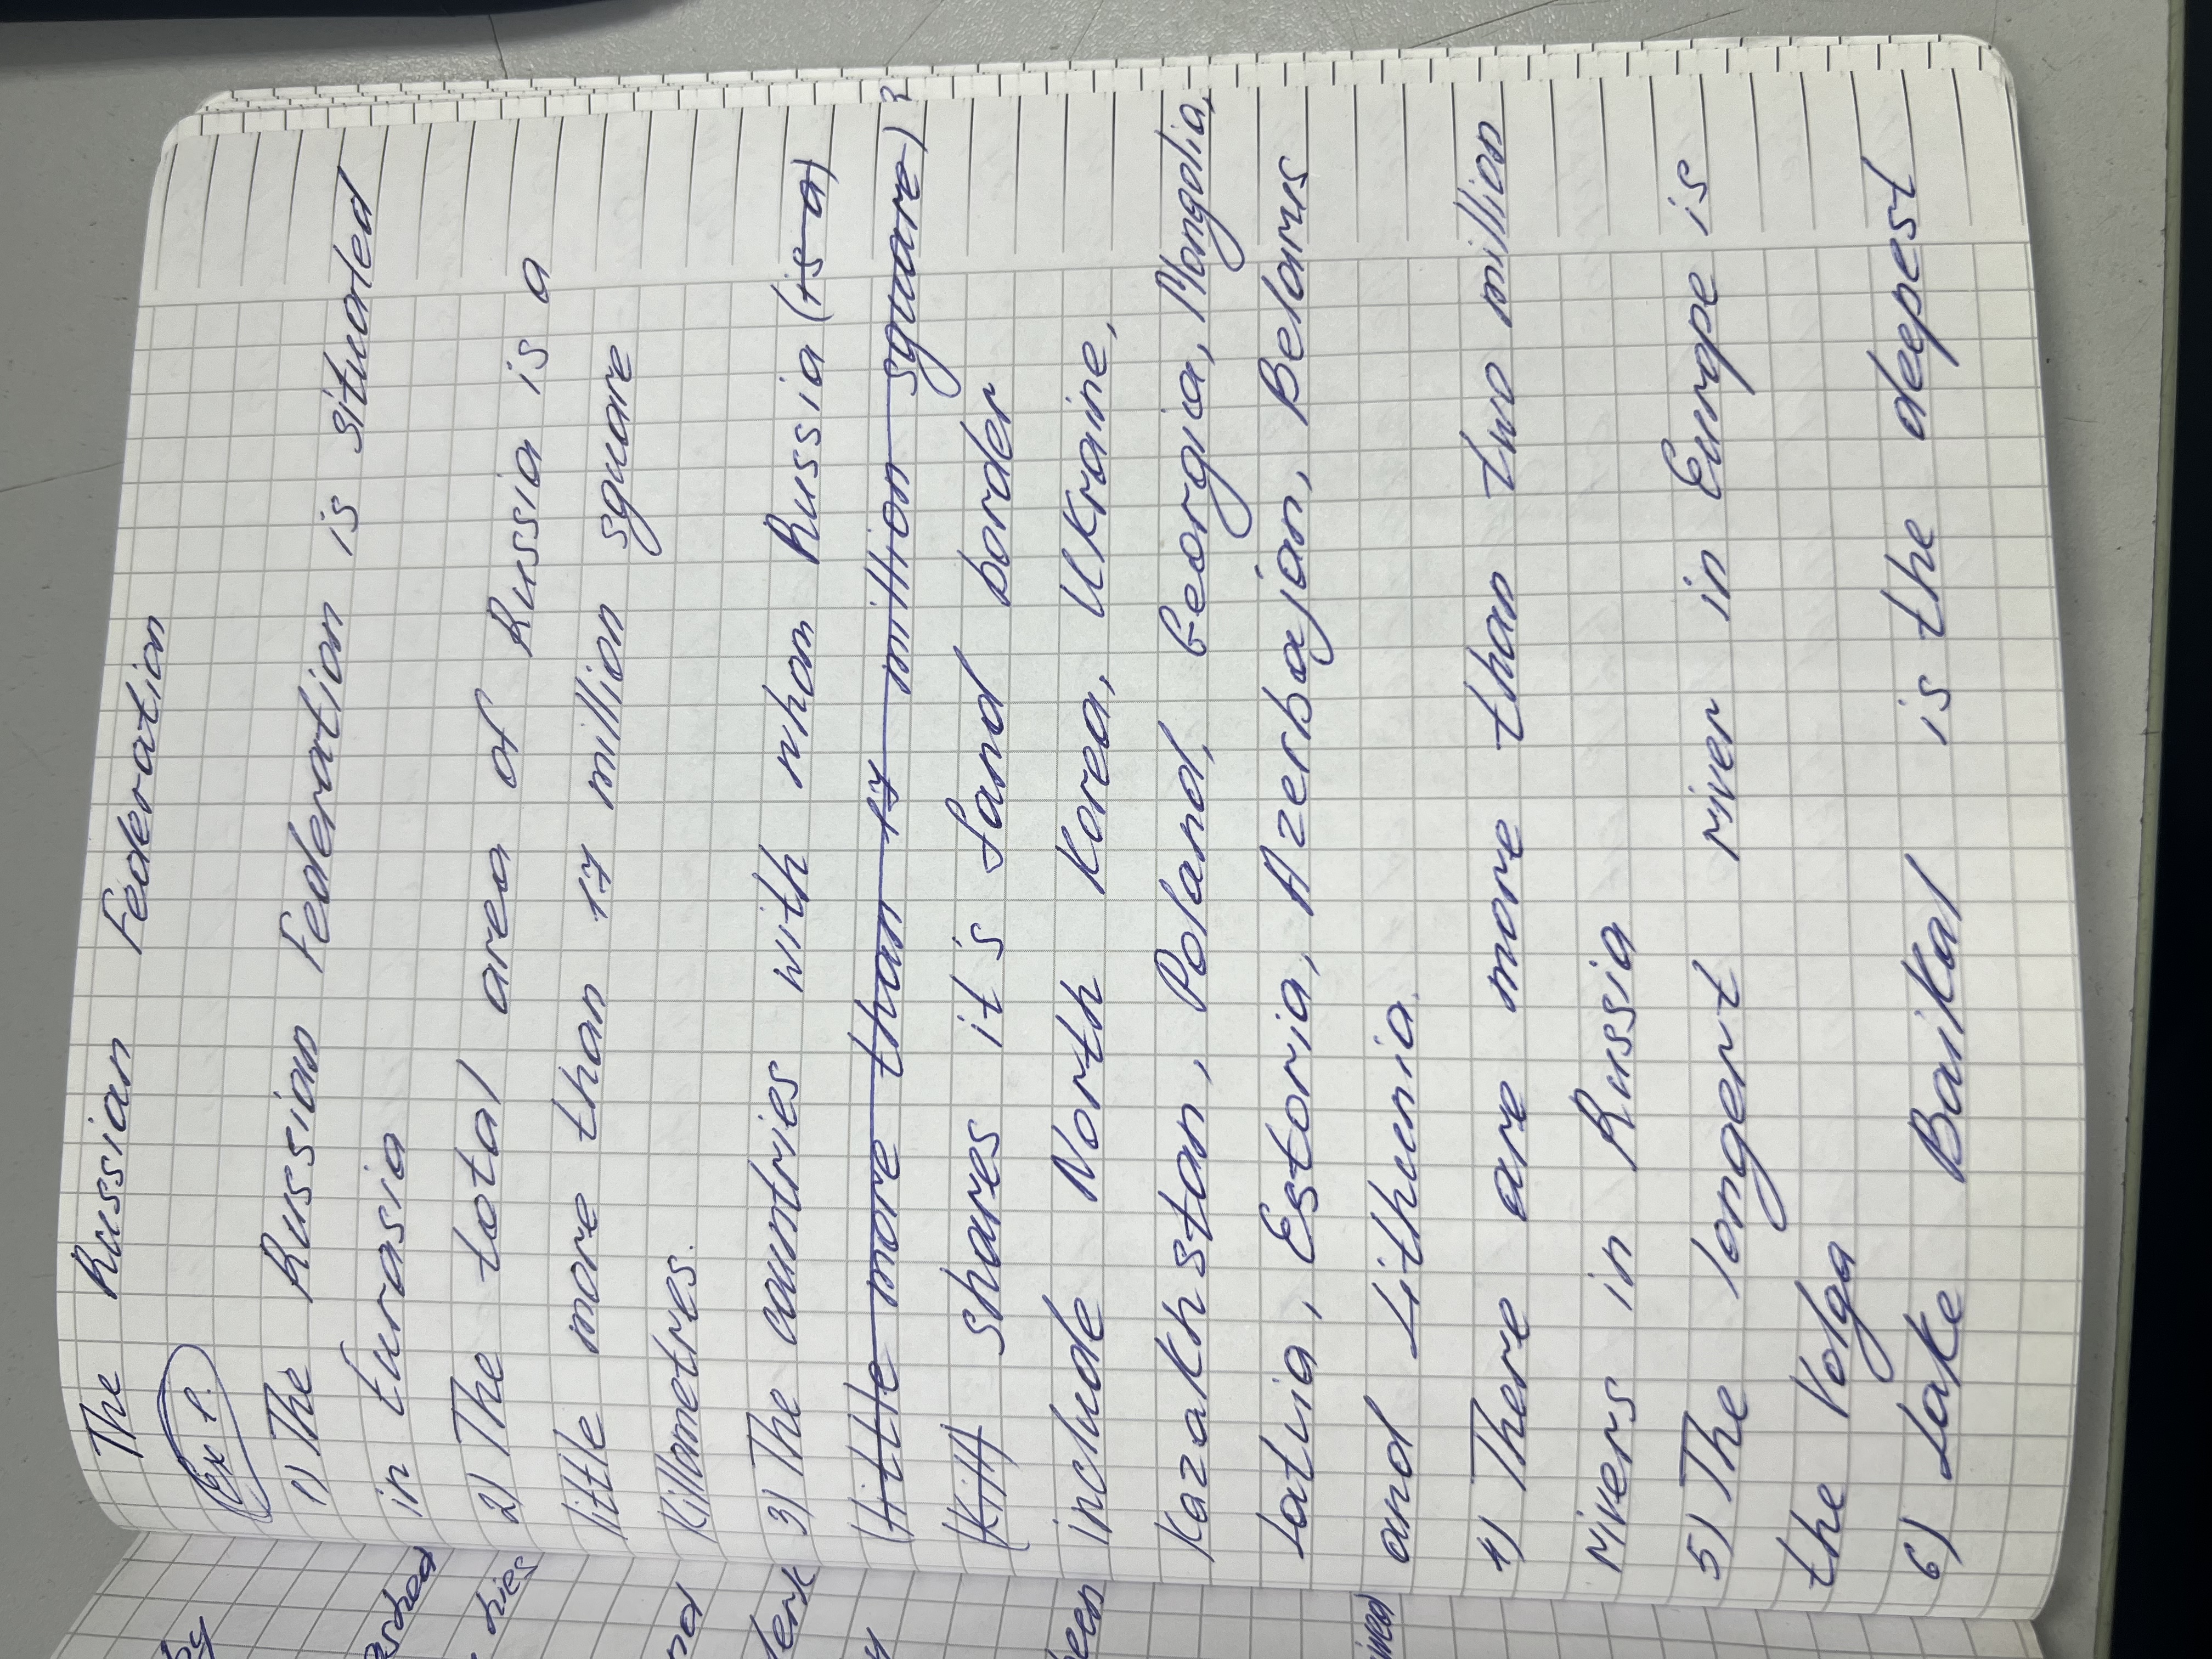 The Russian Federation
Ex 1.
1) The Russian Federation is situated
in Eurasia
2) The total area of Russia is a
little more than 17 million square
Killometres.
3) The countries with whom Russia (is a)
(little more than 17 million square)
(Kill) shares it's land border
include North Korea, Ukraine,
Kazakhstan, Poland, Georgia, Mongolia,
Latvia, Estonia, Azerbajan, Belarus
and Lithuenia.
4) There are more than two million
rivers in Russia
5) The longert river in Europe is
the Volga
6) Lake Baikal is the deepest
by
ashed
hies
nd
lerk
y
been
ined